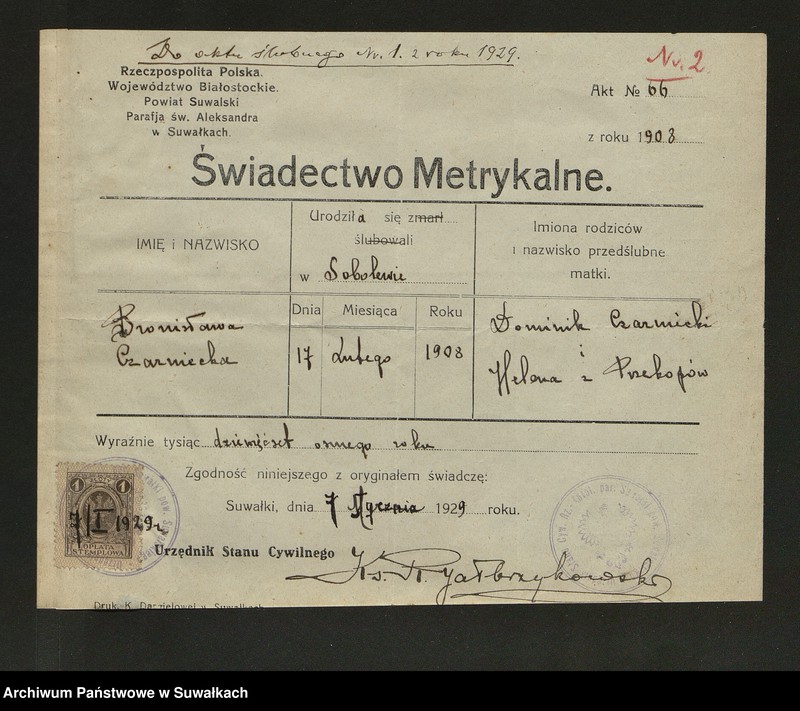 Do aktu ślubnego Nr. 1. z roku 1929.
Nr. 2
Rzeczpospolita Polska.
Województwo Białostockie.
Powiat Suwalski
Parafja św. Aleksandra
w Suwałkach.
Akt № 66
z roku 1908
Świadectwo Metrykalne.
IMIĘ i NAZWISKO
Urodziła się zmarł
ślubowali
w Sobolewie
Imiona rodziców
i nazwisko przedślubne
matki.
Dnia Miesiąca Roku
Bronisława
Czarniecka
17 Lutego 1908
Dominik Czarniecki
i
Helena z Przekopów
Wyraźnie tysiąc dziewięćset osmego roku
Zgodność niniejszego z oryginałem świadczę:
Suwałki, dnia 7 stycznia 1929 roku.
1 1
7/I 1929 r.
OPŁATA
STEMPLOWA
Urzędnik Stanu Cywilnego
Ks.
Druk. K. w Suwałkach
Archiwum Państwowe w Suwałkach